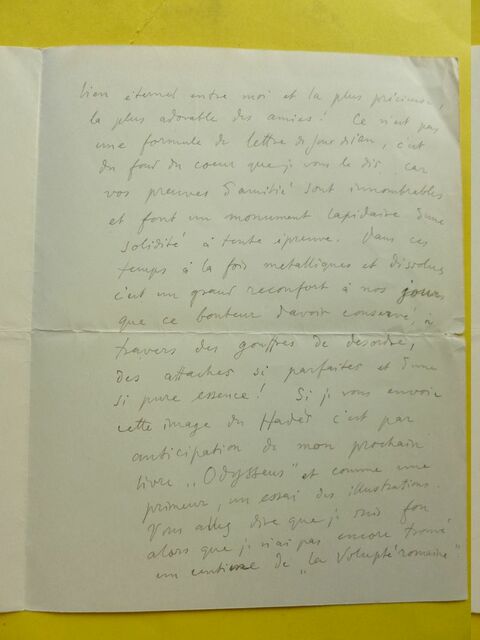 lien éternel entre moi et la plus précieuse,
la plus adorable des amies ! Ce n'est pas
une formule de lettre de jour d'an, c'est
du fond du coeur que je vous le dis, car
vos preuves d'amitié sont innombrables
et font un monument lapidaire d'une
solidité à toute épreuve. Dans ces
temps à la fois metalliques et dissolus
c'est un grand reconfort à nos jours
que ce bonheur d'avoir conservé, à
travers des gouffres de desordre,
des attaches si parfaites et d'une
si pure essence ! Si je vous envoie
cette image du Hadès c'est par
anticipation de mon prochain
livre „Odysseus" et comme une
primeur, un essai des illustrations.
Vous allez dire que je suis fou
alors que je n'ai pas encore trouvé
un de „la Volupté romaine"